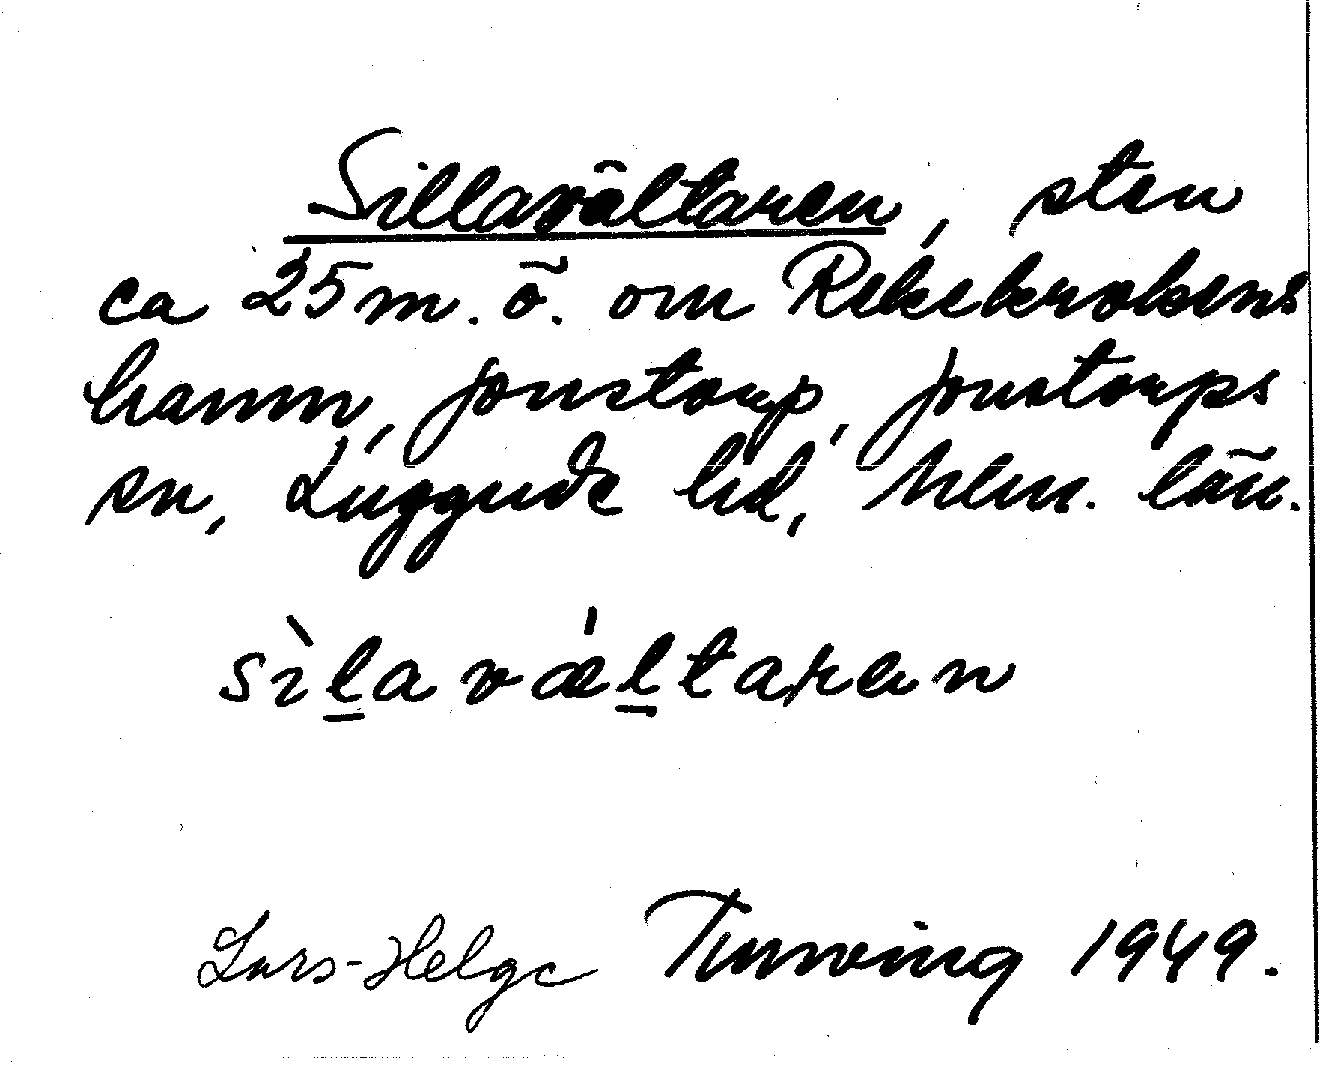 Sillavältaren, sten
ca 25 m. ö. om Rekekrokens
hamn, Jonstorp, Jonstorps
sn, Luggude hd, Mlm. län.
sìlavæ̍ltaran
Lars-Helge Tunving 1949.